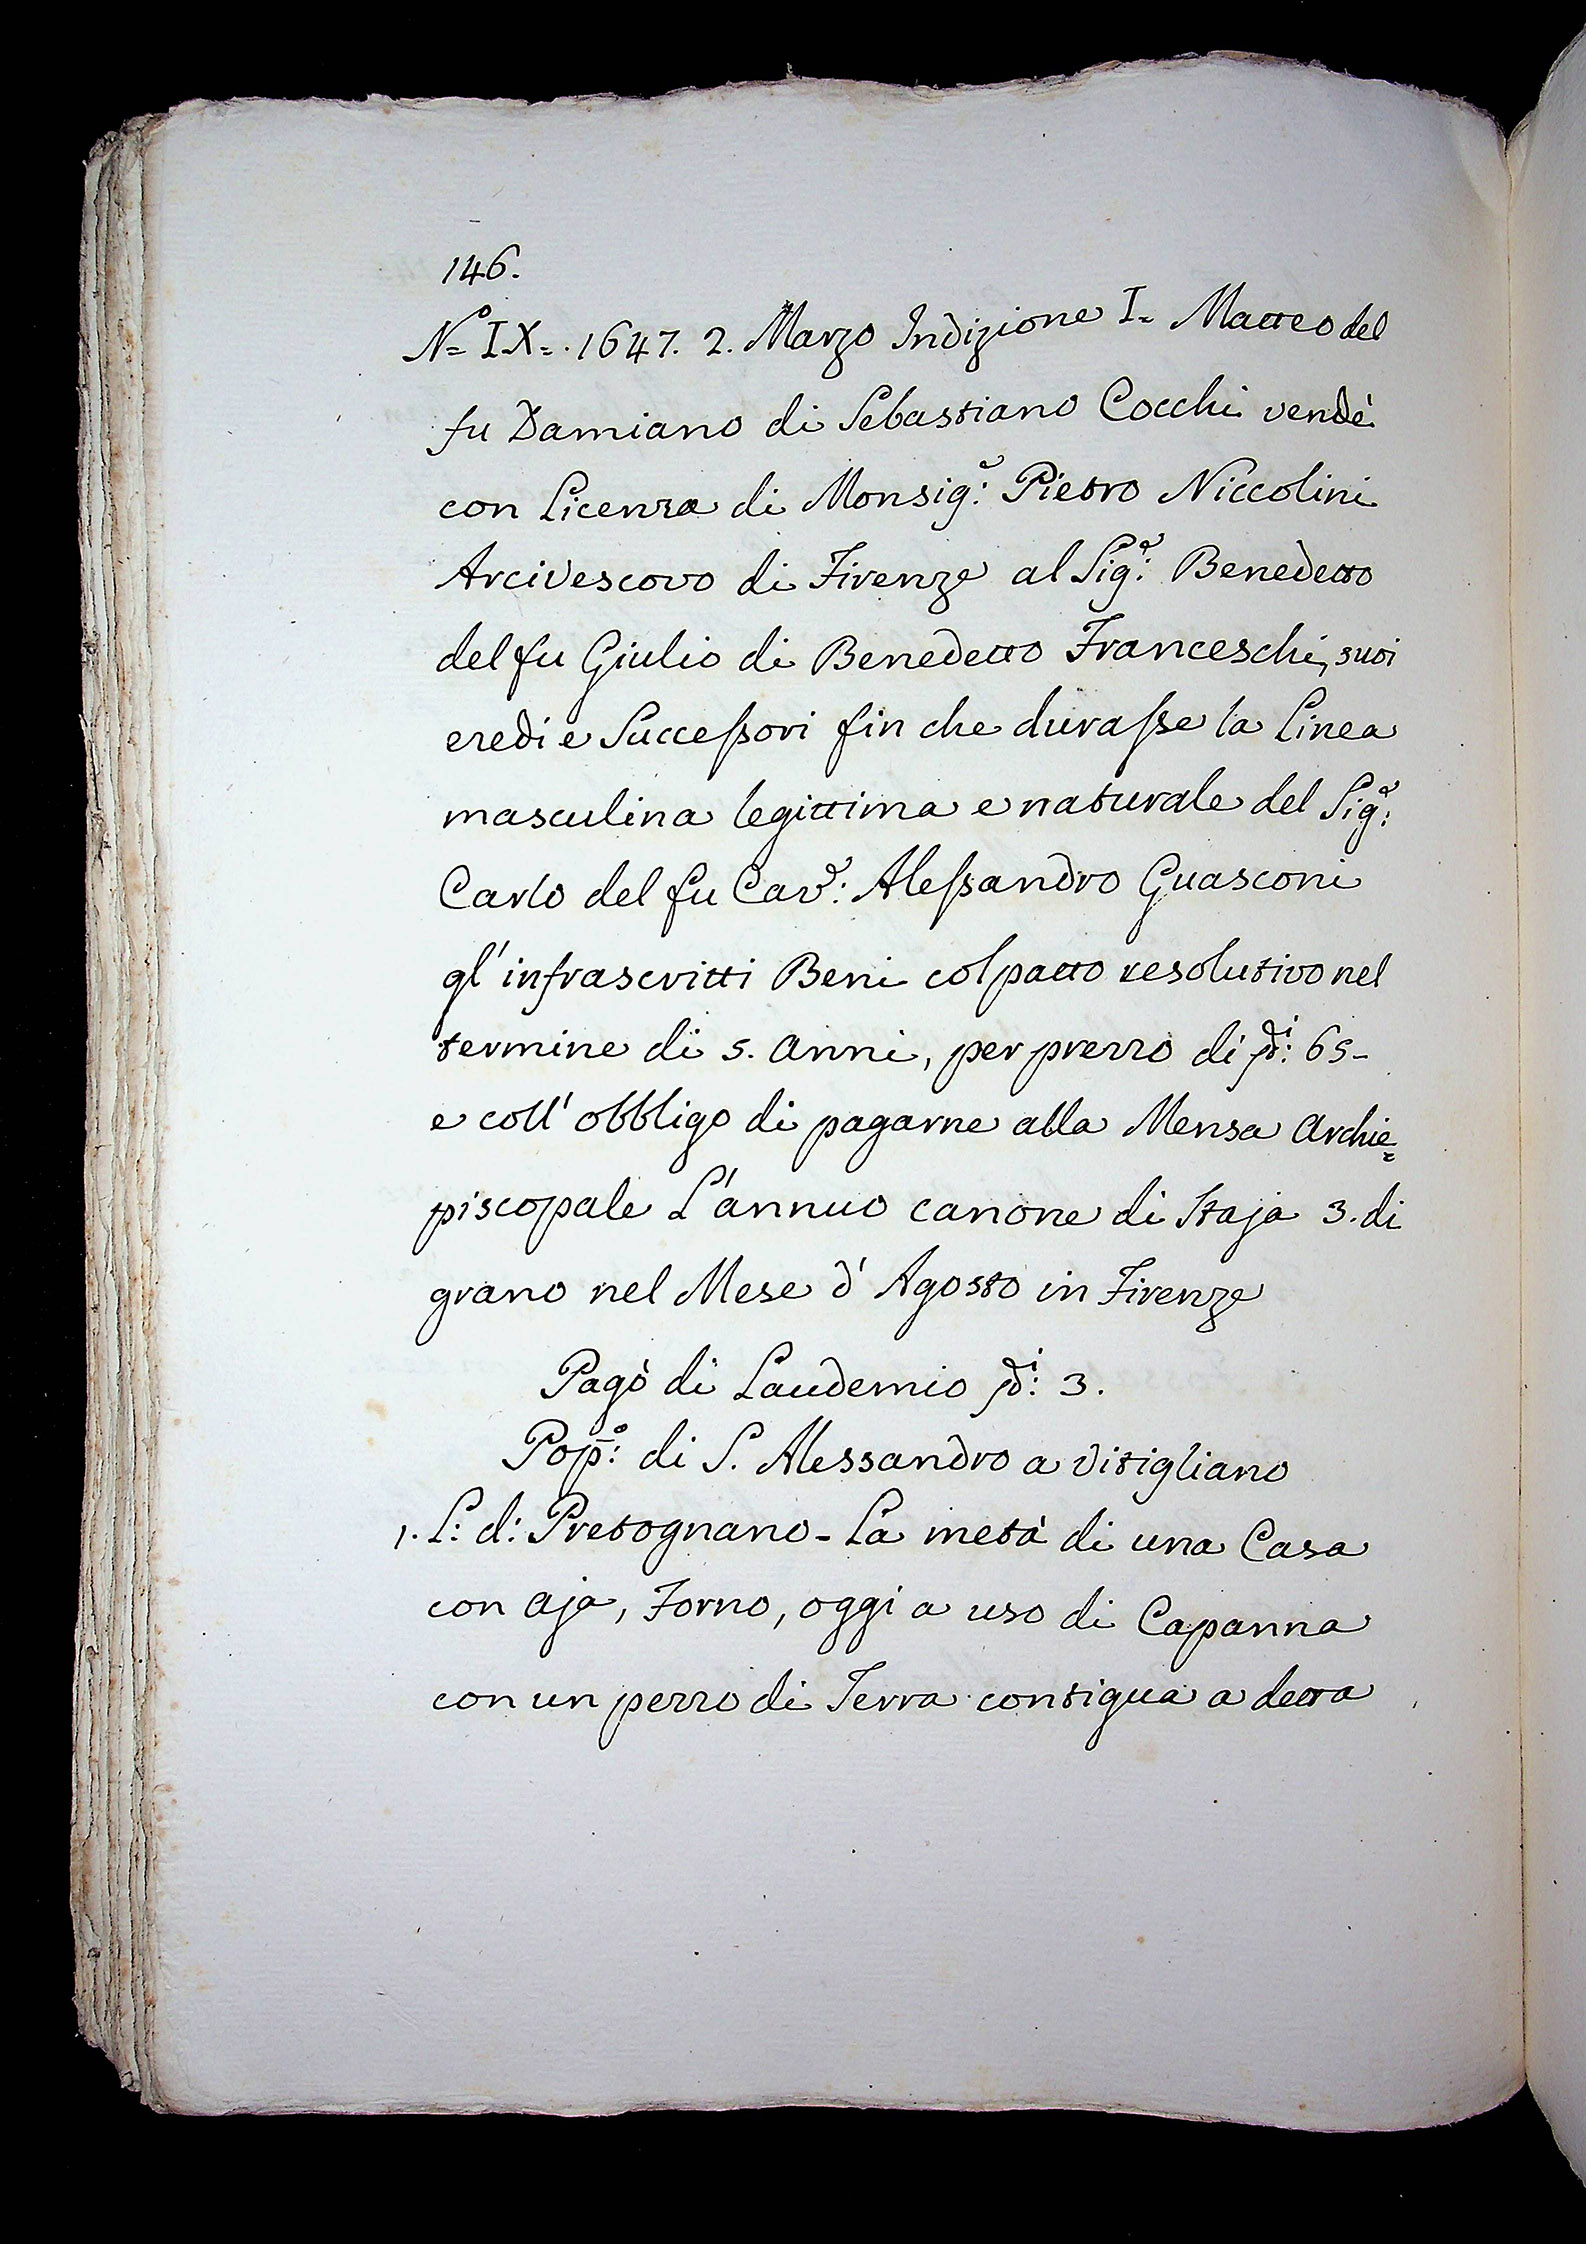 146.
N.º IX=. 1647. 2. Marzo Indizione I= Matteo del
fu Damiano di Sebastiano Cocchi vendè
con Licenza di Monsig.ᵉ: Pietro Niccolini
Arcivescovo di Firenze al Sig.ᵉ: Benedetto
del fu Giulio di Benedetto Franceschi, suoi
eredi e Successori fin che durasse la Linea
masculina legittima e naturale del Sig.ᵉ:
Carlo del fu Cav.ᵉ: Alessandro Guasconi
gl' infrascritti Beni col patto resolutivo nel
termine di 5. anni, per prezzo di 65-
e coll' obbligo di pagarne alla Mensa Archie=
piscopale L'annuo canone di Staja 3. di
grano nel Mese d' Agosto in Firenze
Pagò di Laudemio 3.
Pop.º: di S. Alessandro a Vitigliano
1. L: d: Pretognano - La metà di una Casa
con aja, Forno, oggi a uso di Capanna
con un pezzo di Terra contigua a detta